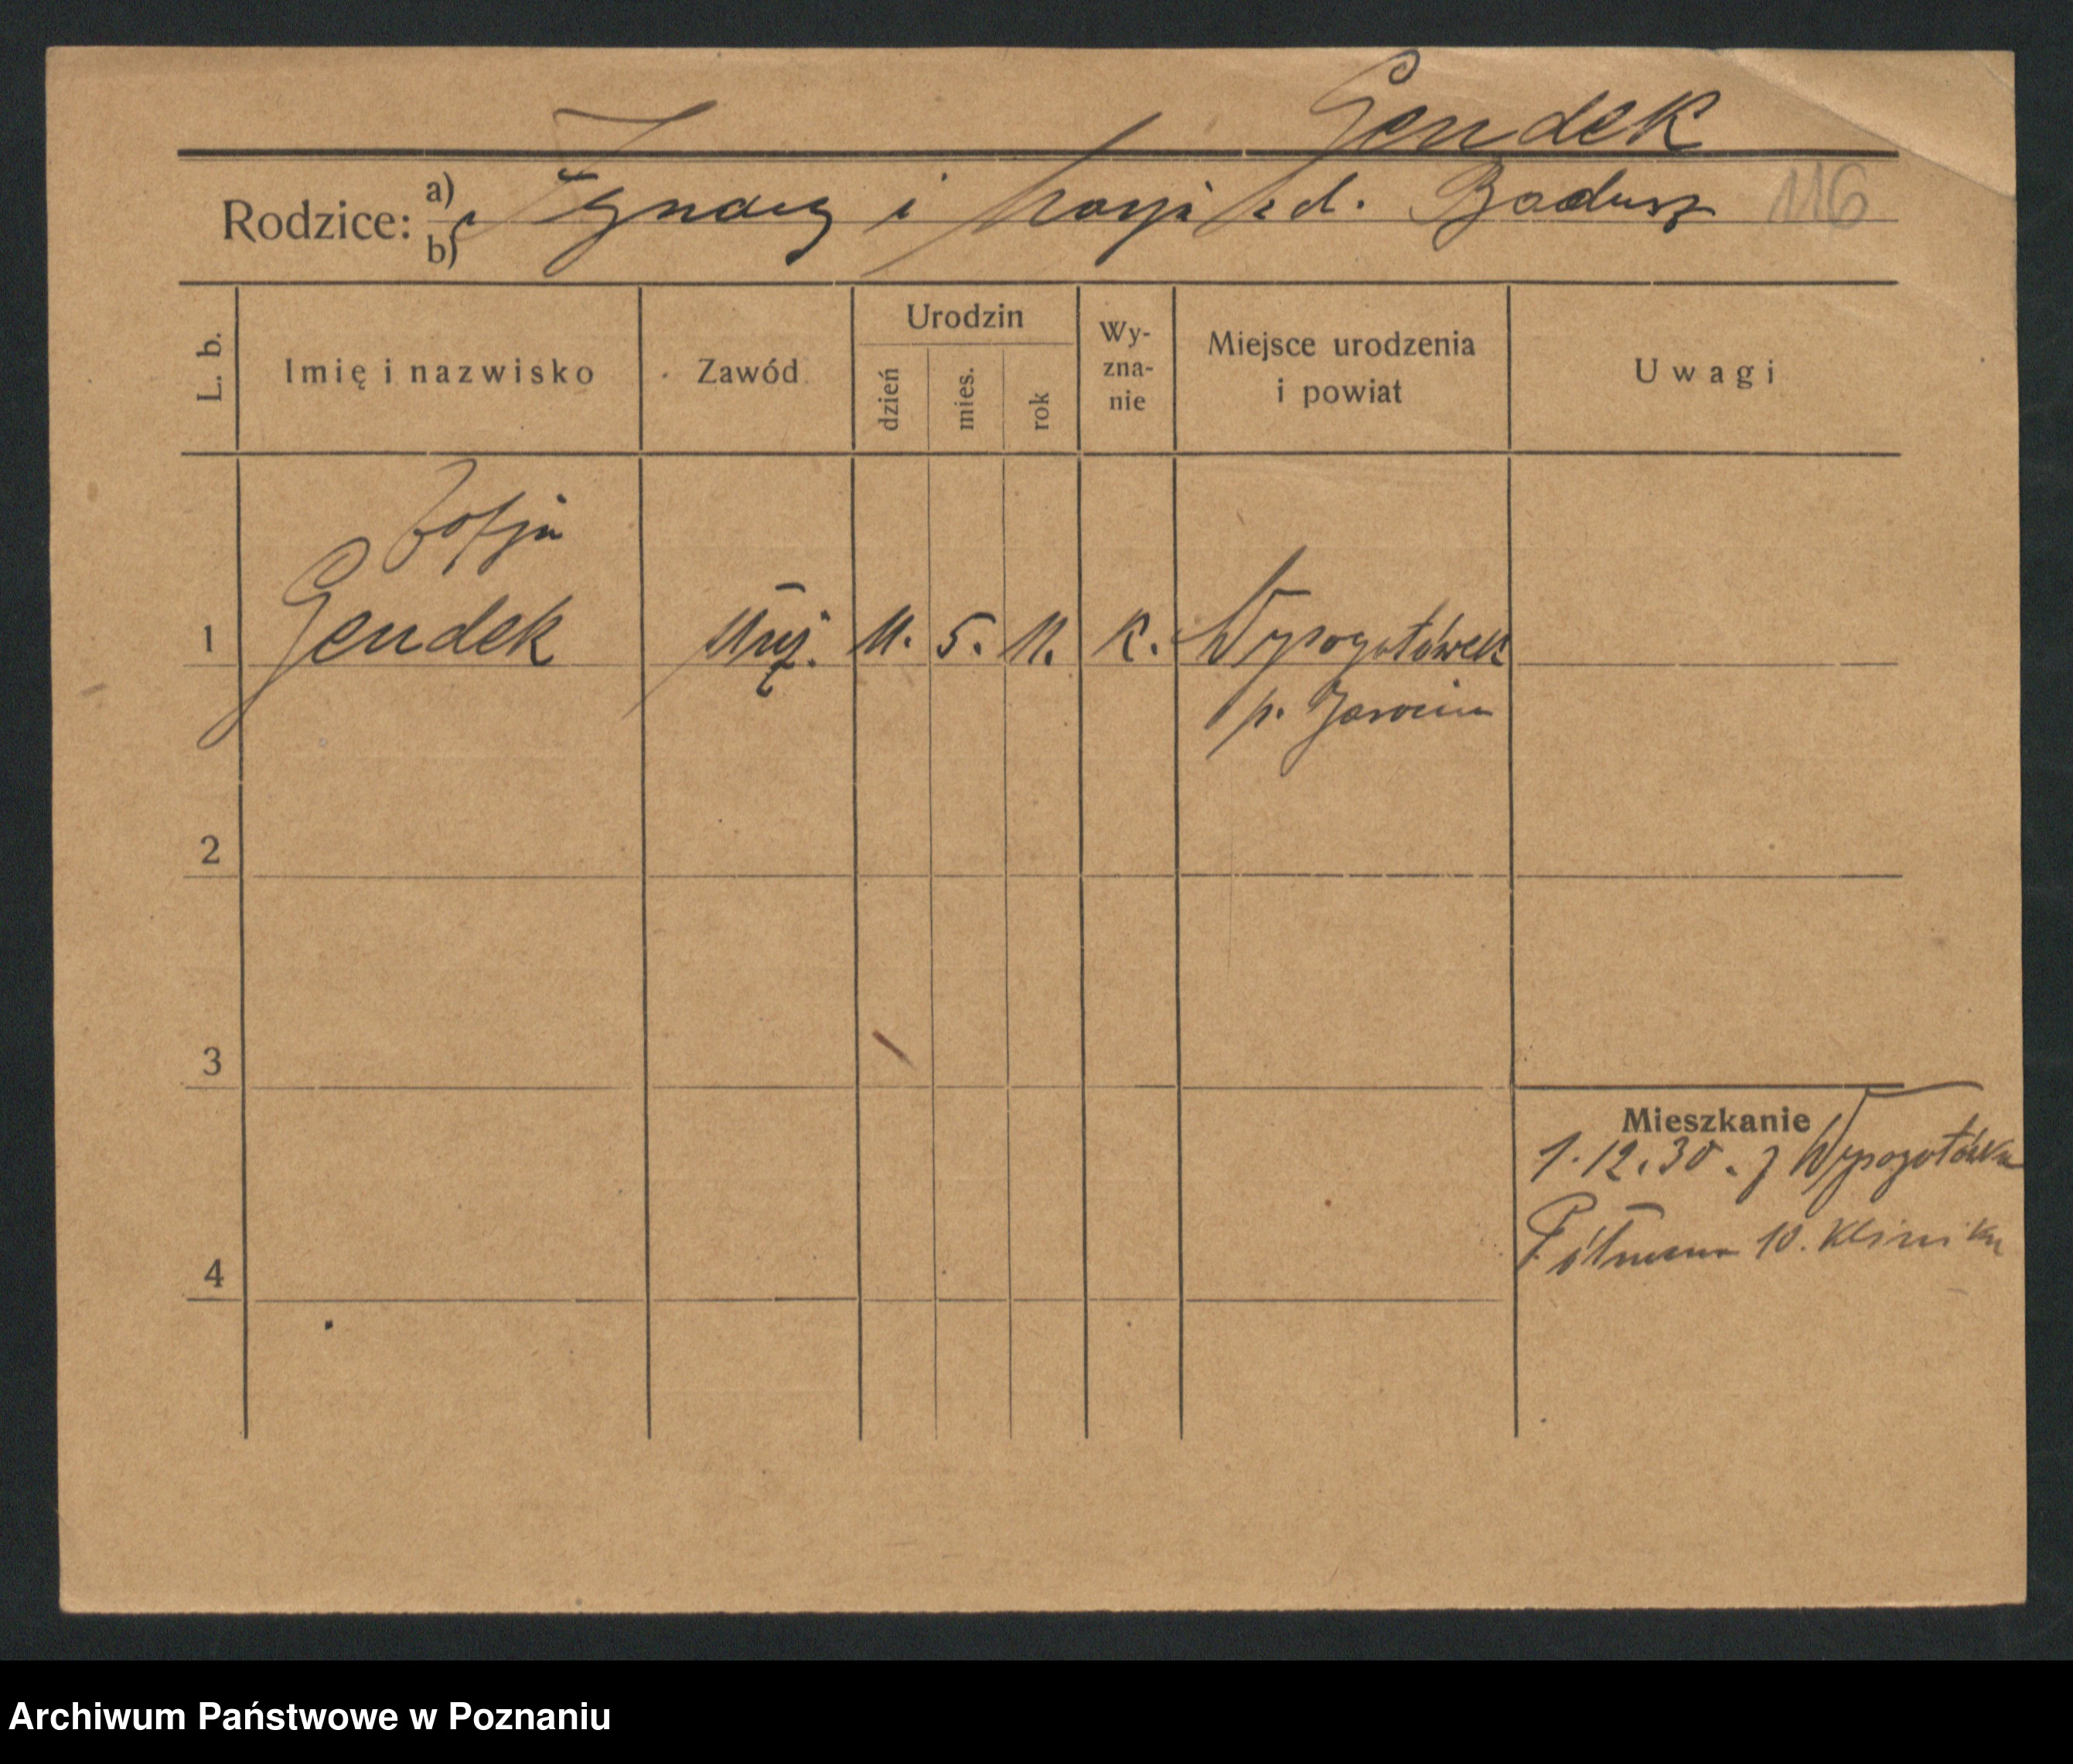 Gendek
Rodzice: a) b) Ignacy i Marja z d. Badusz 116
L. b. Imię i nazwisko Zawód Urodzin dzień mies. rok Wy-zna-nie Miejsce urodzenia i powiat Uwagi
Zofja
1 Gendek służ. 11. 5. 11. K. Wysogotówek
p. Jarocin
2
3
Mieszkanie
1.12.30. z Wysogotówka
Półwiejska 10. Klinika
4
Archiwum Państwowe w Poznaniu